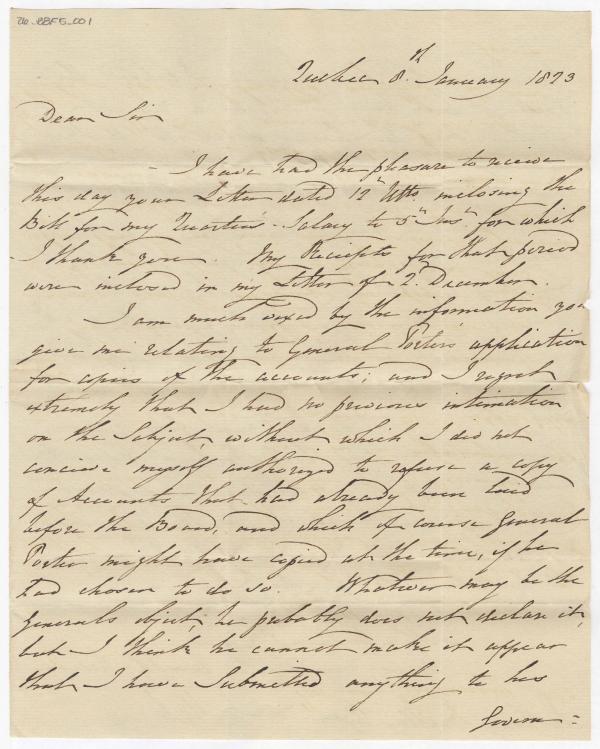 26-BBF5-001
Quebec 8.th January 1823
Dear Sir
- I have had the pleasure to receive
this day your Letter dated 12th Ulto inclosing the
Bill for my Quarter's Salary to 5th Inst for which
I thank you. My Receipts for that period
were inclosed in my Letter of 2d December.
I am much vexed by the information you
give me relating to General Porter's application
for copies of the accounts; and I regret
extremely that I had no previous intimation
on the Subject, without which I did not
conceive myself authorized to refuse a copy
of Accounts that had already been laid
before the Board, and which of course General
Porter might have copied at the time, if he
had chosen to do so. Whatever may be the
Generals object, he probably does not declare it,
but I think he cannot make it appear
that I have Submitted anything to his
Govern=